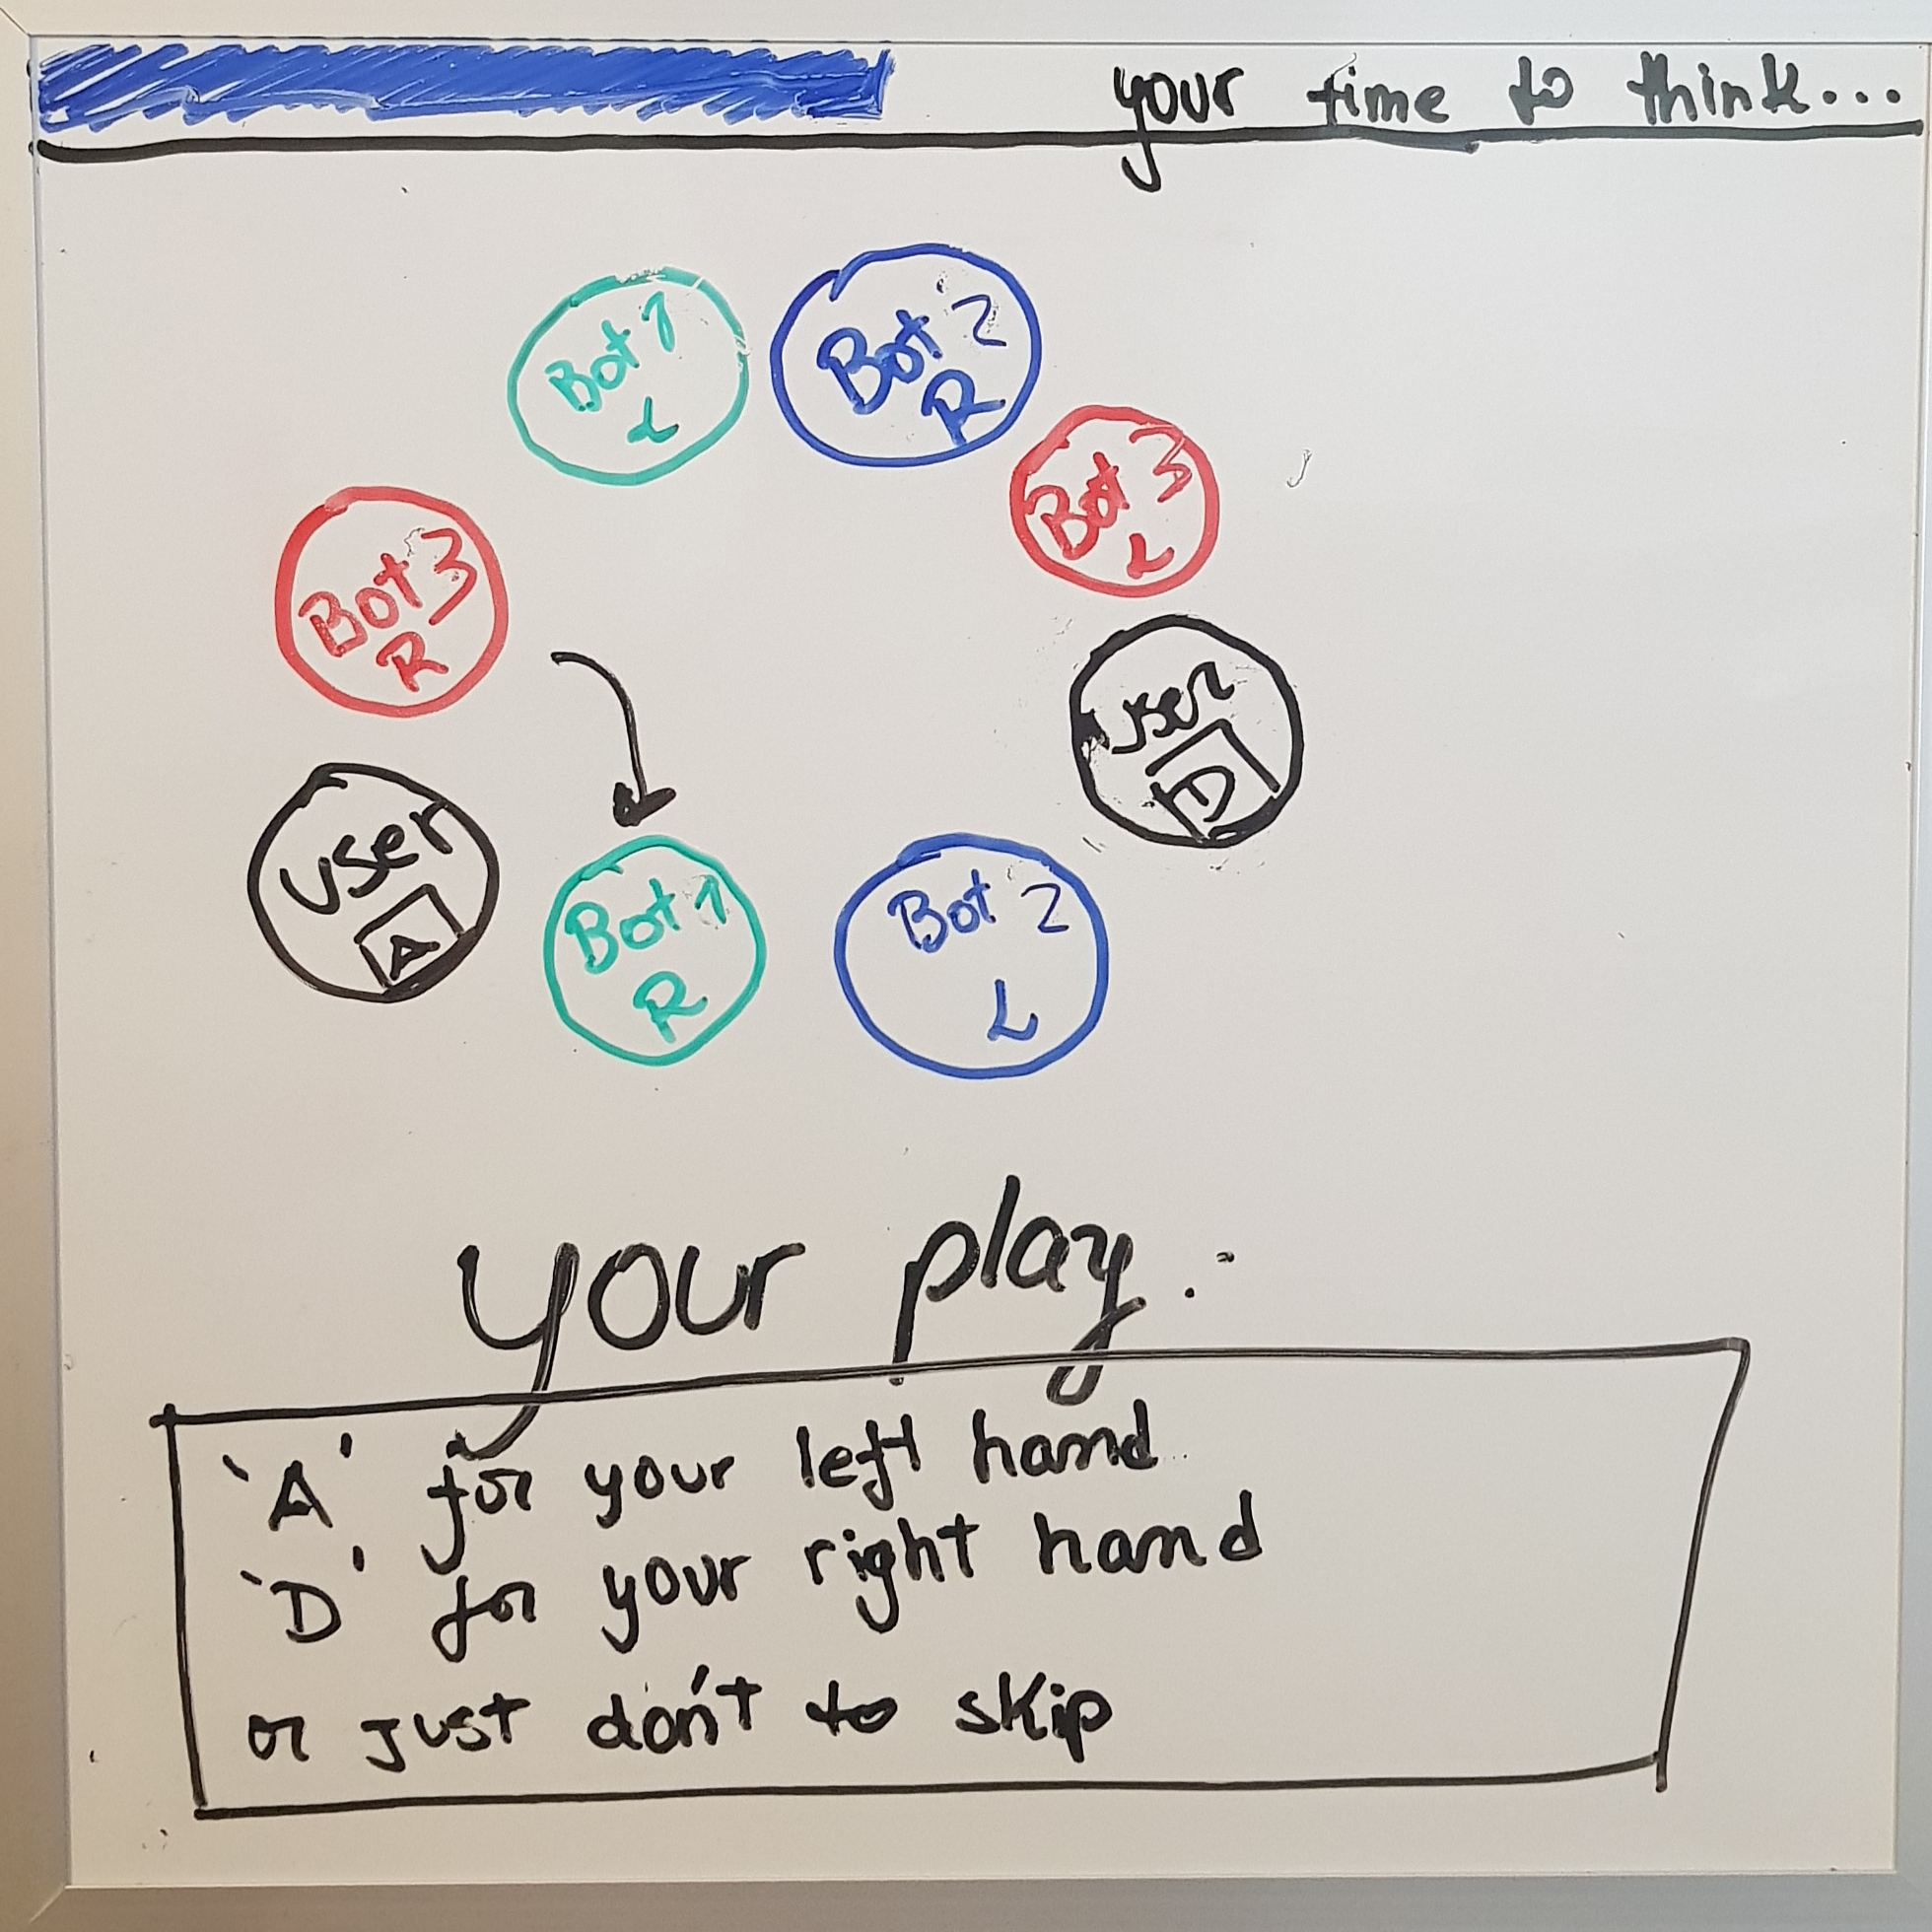 your time to think...
Bot 1
L
Bot 2
R
Bot 3
L
Bot 3
R
User
D
User
A
Bot 1
R
Bot 2
L
your play:
'A' for your left hand
'D' for your right hand
or just don't to skip